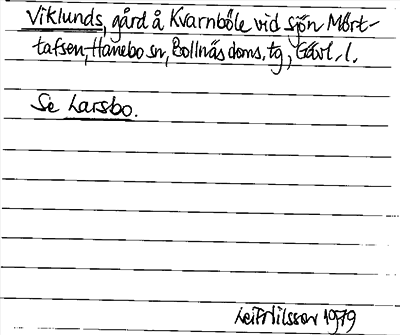 Viklunds, gård å Kvarnböle vid sjön Mårt-
tafsen, Hanebo sn, Bollnäs doms. tg, Gävl. l.
Se Larsbo.
Leif Nilsson 1979